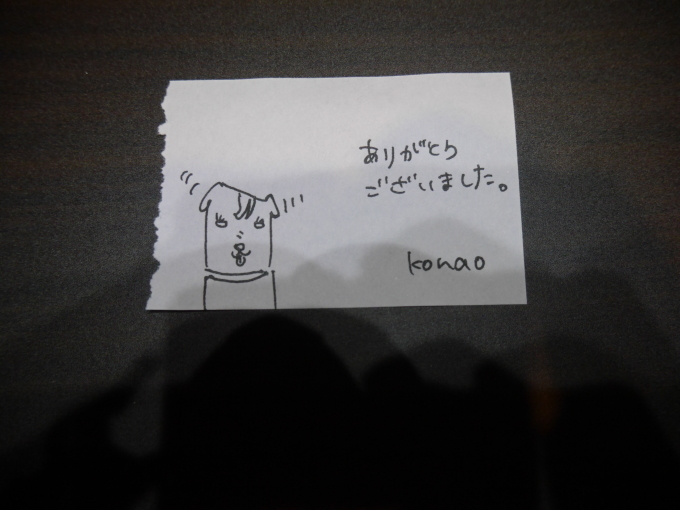 ありがとう
ございました。
konao